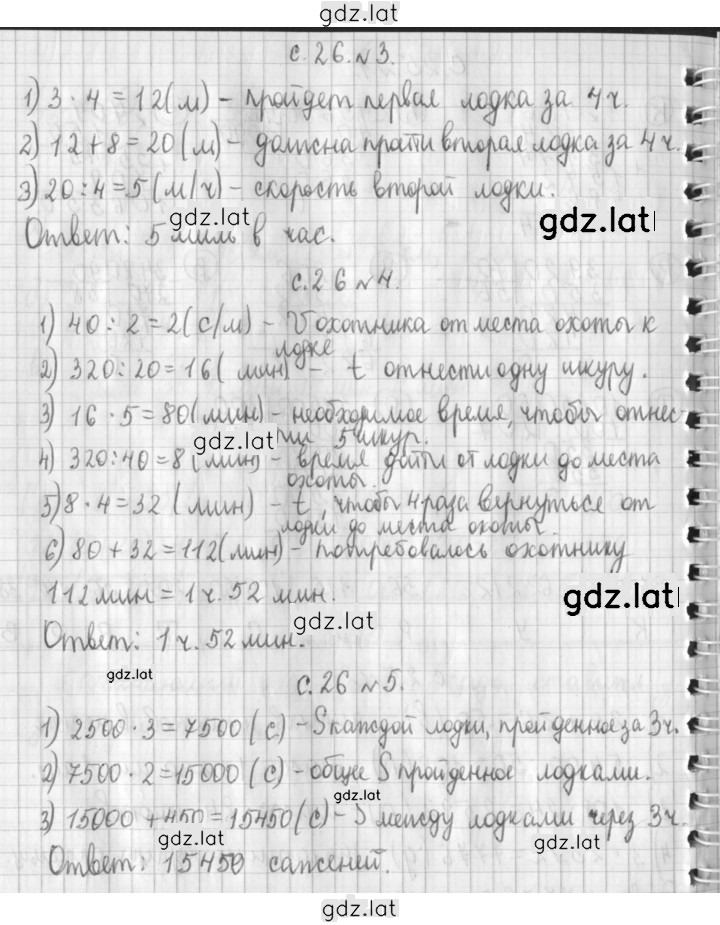 gdz.lat
с. 26. №3.
1) 3 · 4 = 12 (м) – пройдет первая лодка за 4 ч.
2) 12 + 8 = 20 (м) – должна пройти вторая лодка за 4 ч.
3) 20 : 4 = 5 (м/ч) – скорость второй лодки.
gdz.lat gdz.lat
Ответ: 5 миль в час.
с. 26 №4.
1) 40 : 2 = 2 (с/м) – V охотника от места охоты к
лодке
2) 320 : 20 = 16 (мин) – t отнести одну шкуру.
3) 16 · 5 = 80 (мин) – необходимое время, чтобы отнес-
gdz.lat ти 5 шкур.
4) 320 : 40 = 8 (мин) – время дойти от лодки до места
охоты.
5) 8 · 4 = 32 (мин) – t, чтобы 4 раза вернуться от
лодки до места охоты.
6) 80 + 32 = 112 (мин) – потребовалось охотнику
112 мин = 1 ч. 52 мин.
gdz.lat
gdz.lat
Ответ: 1 ч. 52 мин.
gdz.lat
с. 26 №5.
1) 2500 · 3 = 7500 (с) – S каждой лодки, пройденное за 3 ч.
2) 7500 · 2 = 15000 (с) – общее S пройденное лодками.
gdz.lat
3) 15000 + 450 = 15450 (с) – S между лодками через 3 ч.
gdz.lat gdz.lat
Ответ: 15450 саженей.
gdz.lat